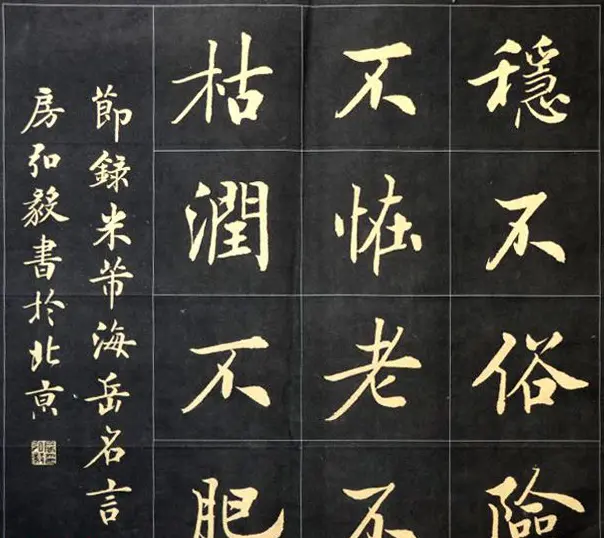 穩不俗險
不恠老不
枯潤不肥
節錄米芾海岳名言
房弘毅書於北亰